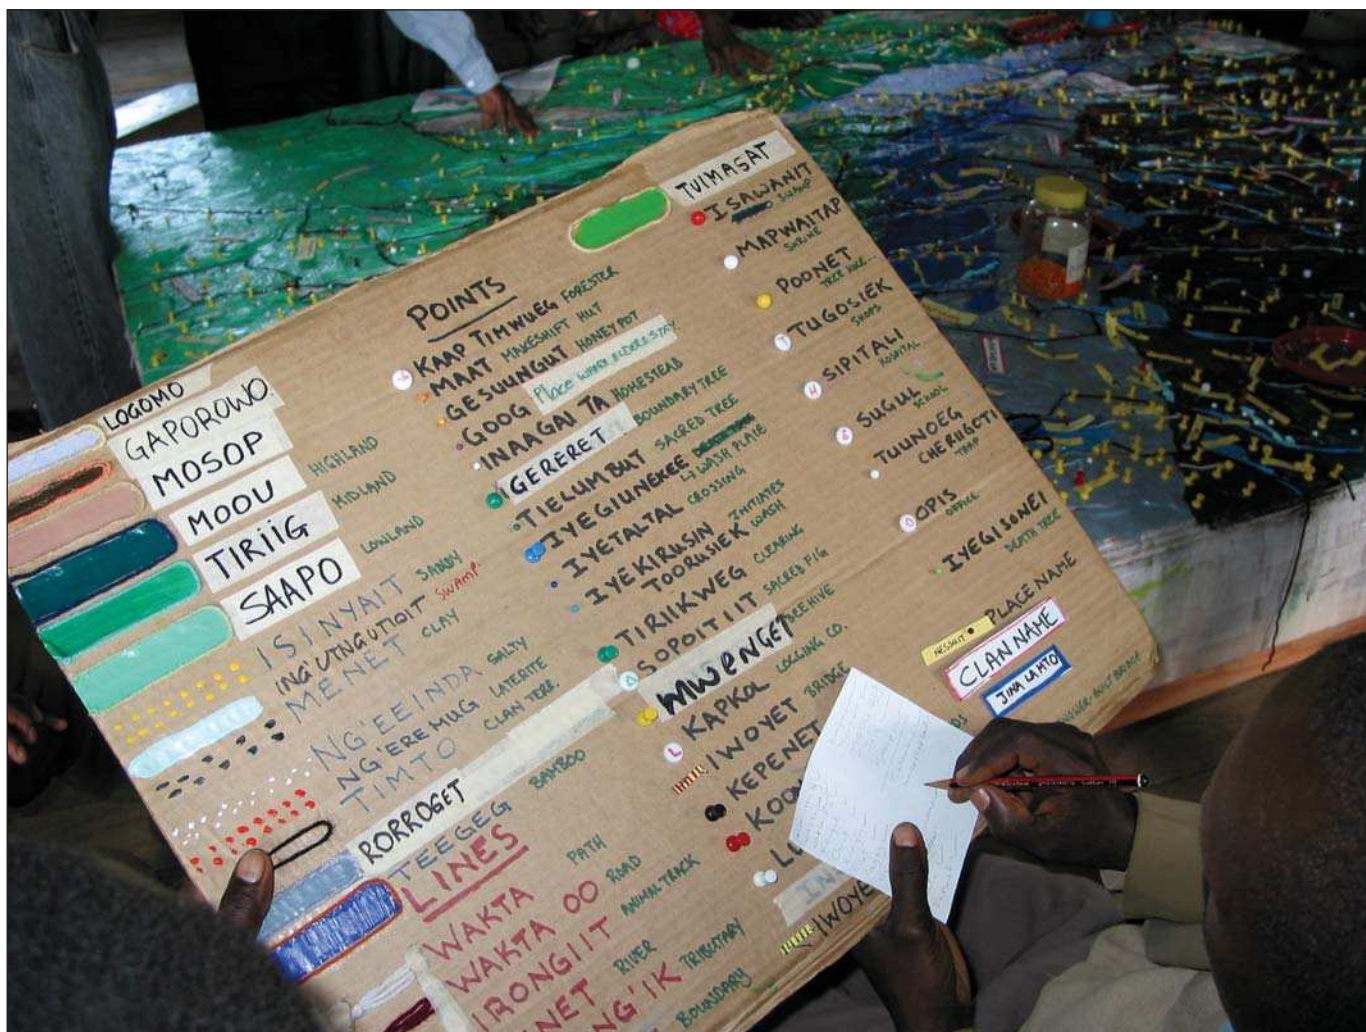 LOGOMO
GAPOROWO.
MOSOP
MOOU HIGHLAND
TIRIIG MIDLAND
SAAPO LOWLAND
ISINYAIT SANDY
ING'UNGUTIOIT SWAMP
MENET CLAY
NG'EEINDA SALTY
NG'EREMUG LATERITE
TIMTO CLAN TERR.
RORROGET
TEEGEG BAMBOO
LINES
WAKTA PATH
WAKTA OO ROAD
IRONGIIT ANIMAL TRACK
NET RIVER
NG'IK TRIBUTARY
BOUNDARY
POINTS
KAAP TIMWUEG FORESTER
MAAT MAKESHIFT HUT
GESUUNGUT HONEYPOT
GOOG Place WHERE ELDERS STAY
INAAGAL TA HOMESTEAD
GERERET BOUNDARY TREE
TIELUMBUT SACRED TREE
IYEGIUNEKEE WASH PLACE
IYETALTAL CROSSING
IYEKIRUSIN INITIATES
TOORUSIEK WASH
TIRIIKWEG CLEARING
SOPOITIIT SACRED FIG
MWENGET BEEHIVE
L KAPKOL LOGGING CO.
IWOYET BRIDGE
KEPENET
KOO
IWOYE
TUIMASAT
ISAWANIT SWAMP
MAPWAITAP SHRINE
POONET
T TUGOSIEK SHOPS
H SIPITALI HOSPITAL
SUGUL SCHOOL
TUUNOEG
CHERIIGOTI
TRAP
O OPIS OFFICE
IYEGISONEI DEATH TREE
NESSUIT PLACE NAME
CLAN NAME
JINA LA MTO